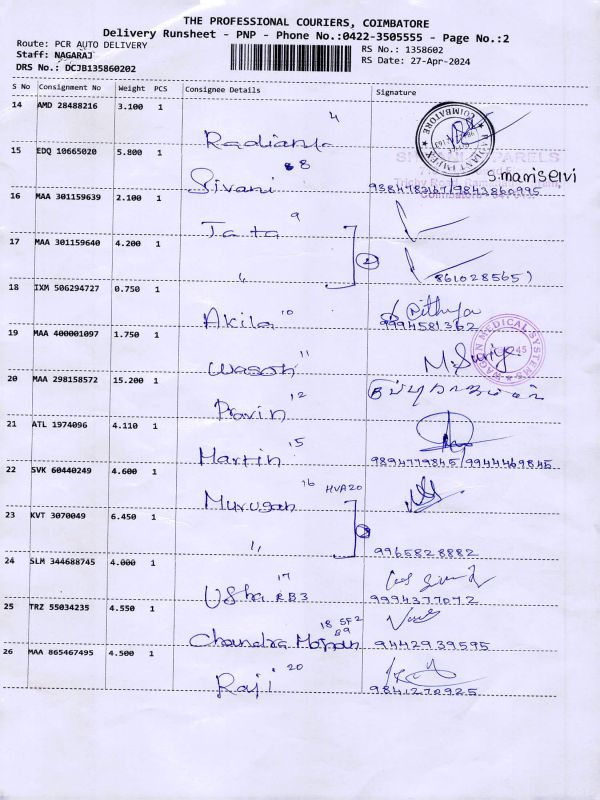 THE PROFESSIONAL COURIERS, COIMBATORE
Delivery Runsheet - PNP - Phone No.:0422-3505555 - Page No.:2
Route: PCR AUTO DELIVERY
RS No.: 1358602
Staff: NAGARAJ
RS Date: 27-Apr-2024
DRS No.: DCJB135860202
S No Consignment No Weight PCS Consignee Details Signature
14 AMD 28488216 3.100 1 4
COIMBATORE
15 EDQ 10665020 5.800 1 8
Sivani S.maniselvi
16 MAA 301159639 2.100 1 9
Tata
17 MAA 301159640 4.200 1 2
"
18 IXM 506294727 0.750 1 10
Akila
9994581362
19 MAA 400001097 1.750 1 11
Wason M.Suriya
MEDICAL SYSTEMS
20 MAA 298158572 15.200 1 12
Pravin
21 ATL 1974096 4.110 1 15
Martin 9894779845 / 9944469845
22 SVK 60440249 4.600 1 16 HVA20
Murugan
23 KVT 3070049 6.450 1
" 9965828882
24 SLM 344688745 4.000 1 17
Usha RB3 9994377072
25 TRZ 55034235 4.550 1 18 SF2
B9
Chandra Mohan 9442939595
26 MAA 865467495 4.500 1 20
Raji 9841270925